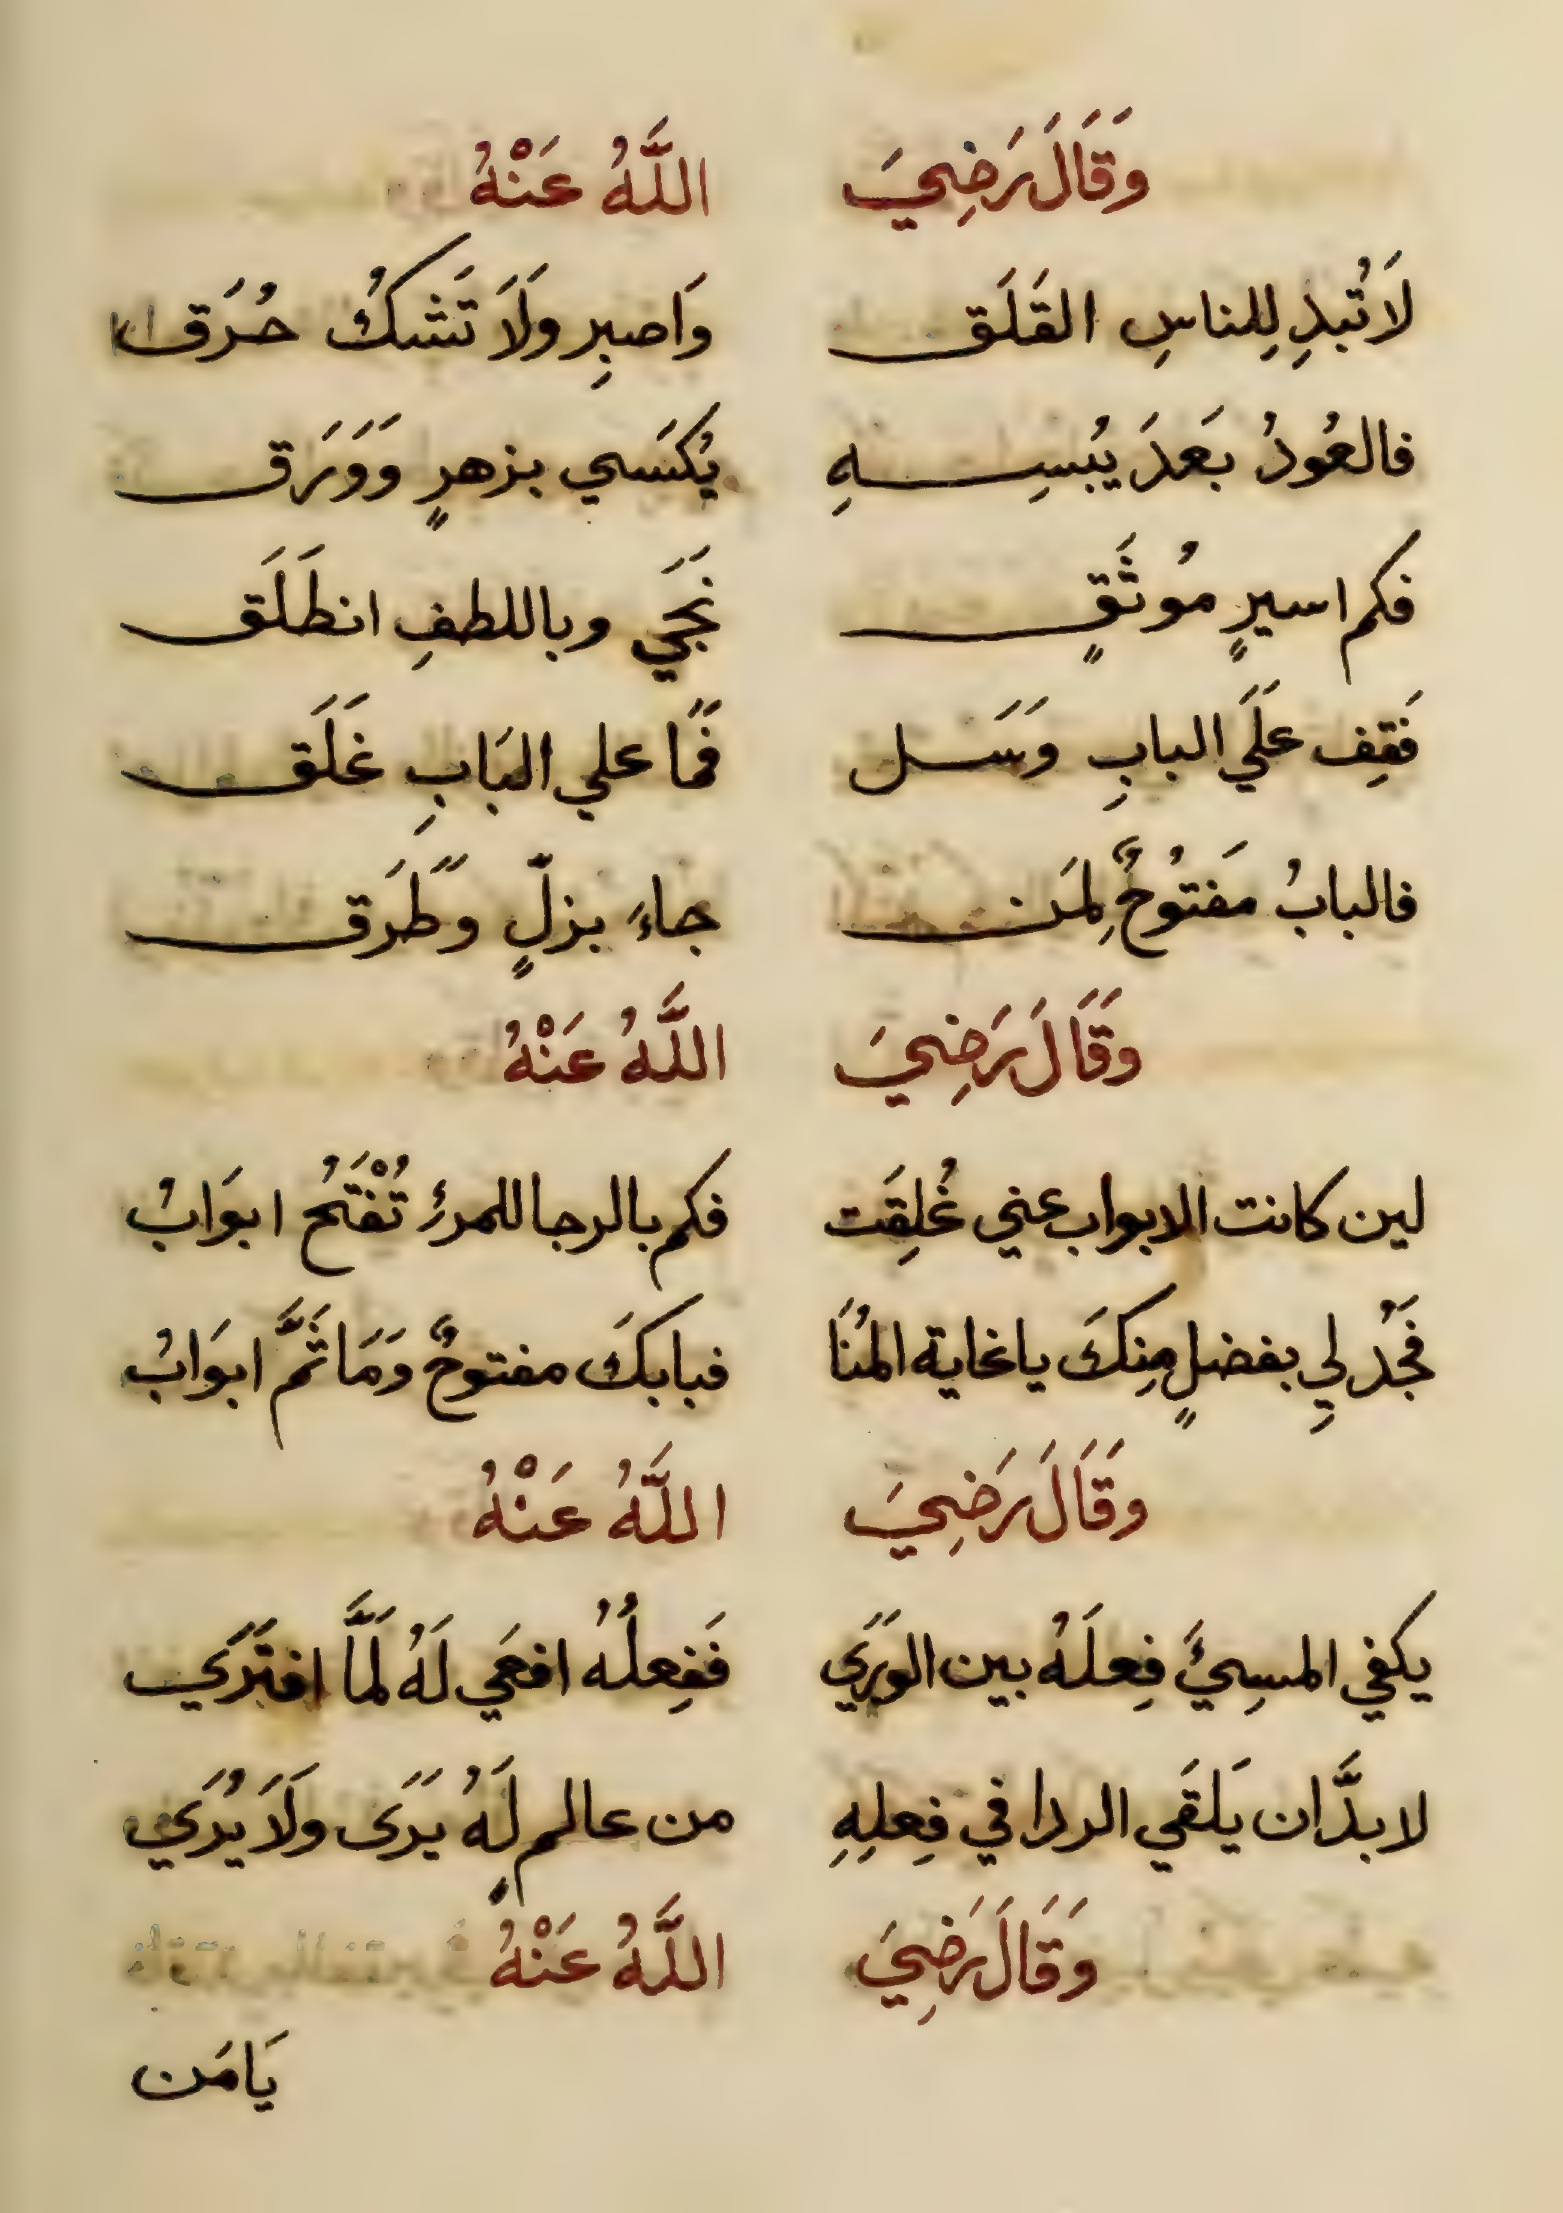 وَقَالَ رَضِيَ اللَّهُ عَنْهُ
لَا تُبدِ لِلناسِ القَلَق وَاصبِر وَلَا تَشكُ حُرَق
فالعُودُ بَعدَ يُبسِهِ يُكسَي بزهرٍ وَوَرَق
فكم اسيرٍ مُوثَقٍ نَجَي وباللطفِ انطَلَق
فَقِف عَلَي البابِ وَسَل فَمَا علي البَابِ غَلَق
فالبابُ مَفتُوحٌ لِمَن جاءَ بزلٍّ وَطَرَق
وَقَالَ رَضِيَ اللَّهُ عَنْهُ
لين كانت الابواب عني غُلِقَت فكم بالرجا للمرءِ تُفْتَحُ ابوَابُ
فَجُد لِي بفضلٍ مِنكَ يا غاية المُنَا فبابكَ مفتوحٌ وَمَا ثَمَّ ابوَابُ
وَقَالَ رَضِيَ اللَّهُ عَنْهُ
يكفي المسِيَّ فِعلَهُ بين الوَرَي فَفِعلُهُ افعَي لَهُ لَمَّا افتَرَي
لا بدَّ ان يَلقَي الردا في فِعلِهِ من عالمٍ لَهُ يَرَى وَلَا يُرَي
وَقَالَ رَضِيَ اللَّهُ عَنْهُ
يَا مَن